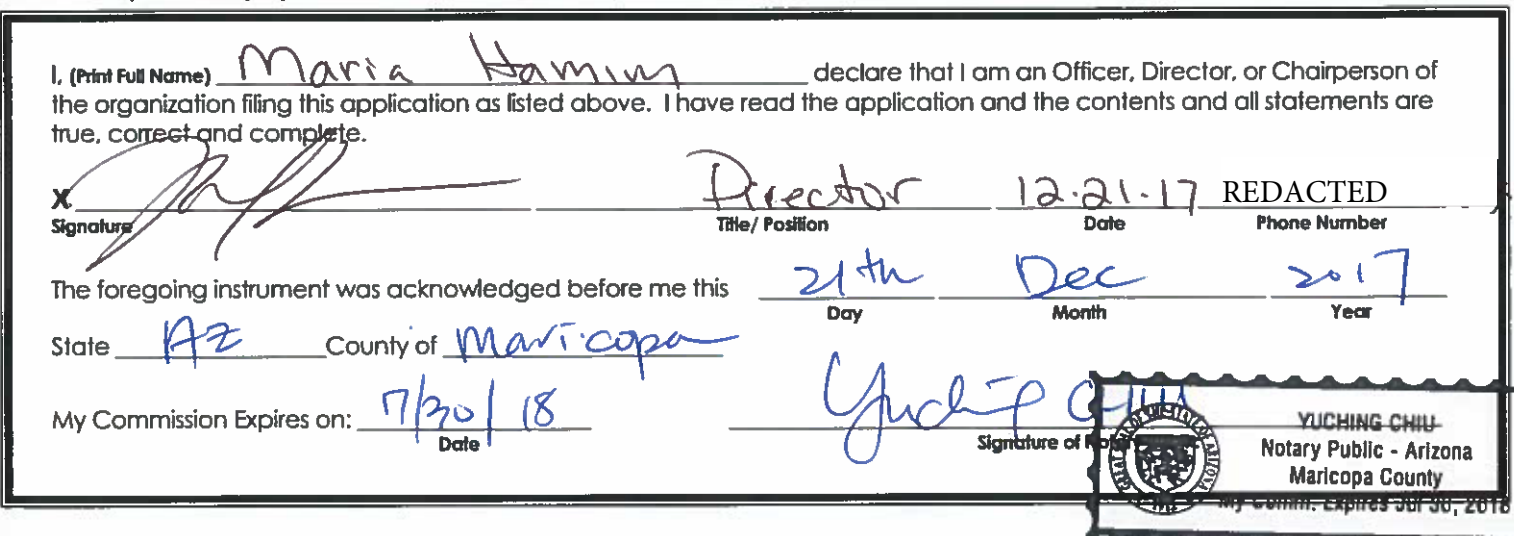 I, (Print Full Name) Maria Hamim declare that I am an Officer, Director, or Chairperson of
the organization filing this application as listed above. I have read the application and the contents and all statements are
true, correct and complete.
X Director 12·21·17 REDACTED
Signature Title/ Position Date Phone Number
The foregoing instrument was acknowledged before me this 21th Dec 2017
Day Month Year
State AZ County of Maricopa
My Commission Expires on: 7/30/18 Yuching CHIU
Date Signature of
YUCHING CHIU
Notary Public - Arizona
Maricopa County
My Comm. Expires Jul 30, 2018